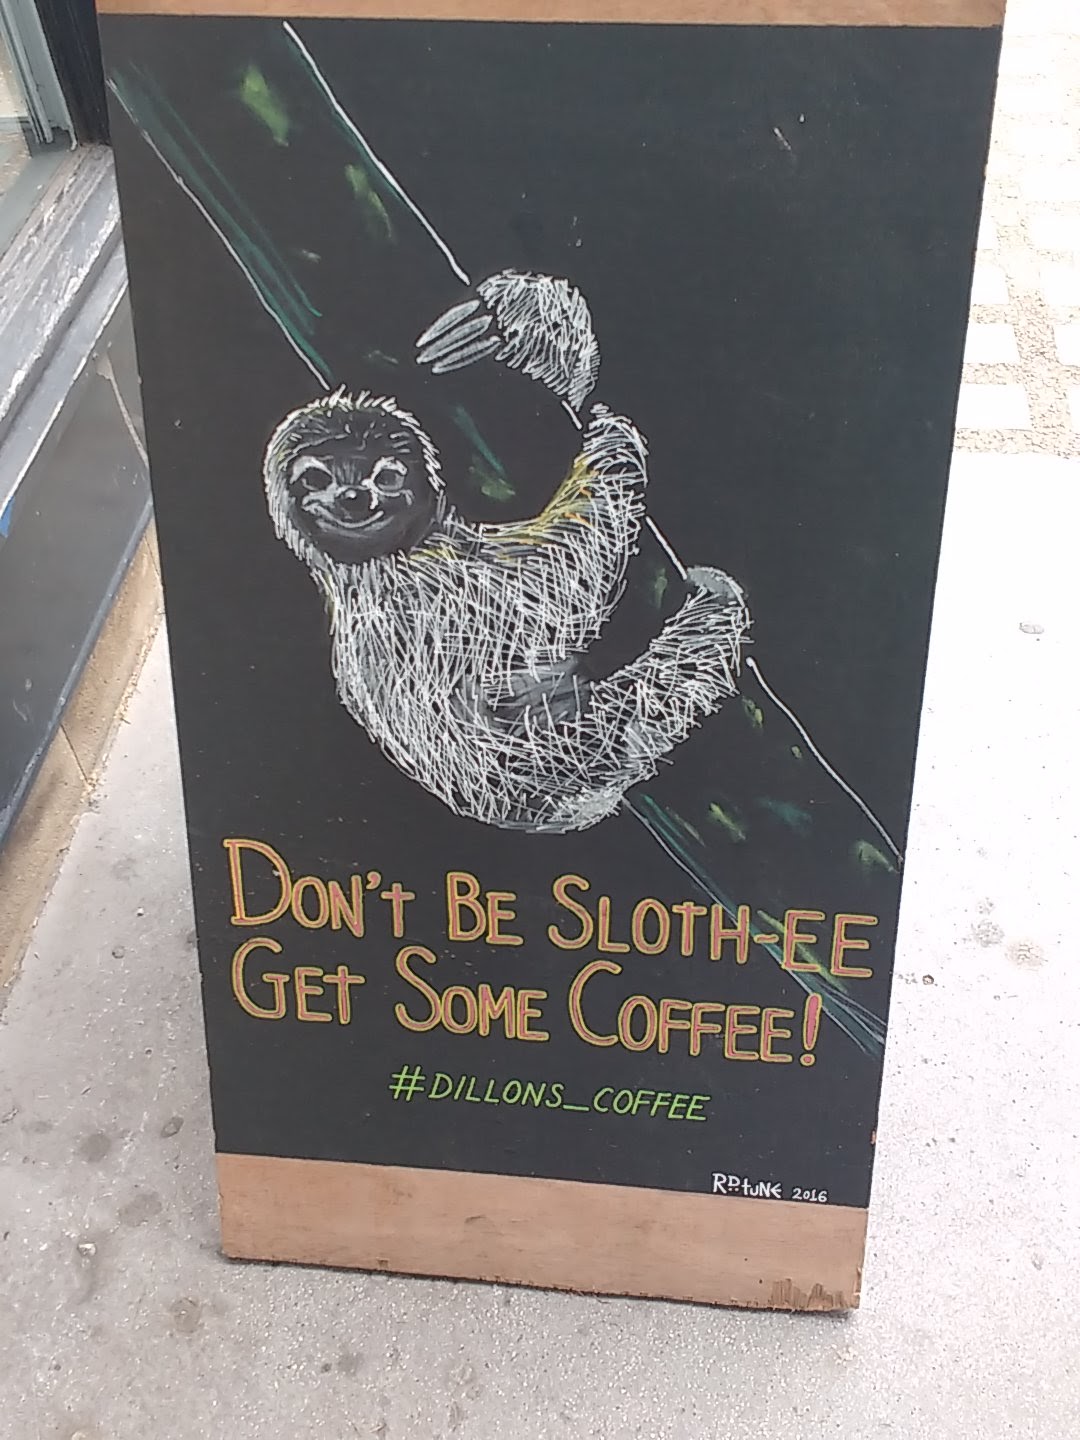 DON'T BE SLOTH-EE
GET SOME COFFEE!
#DILLONS_COFFEE
2016